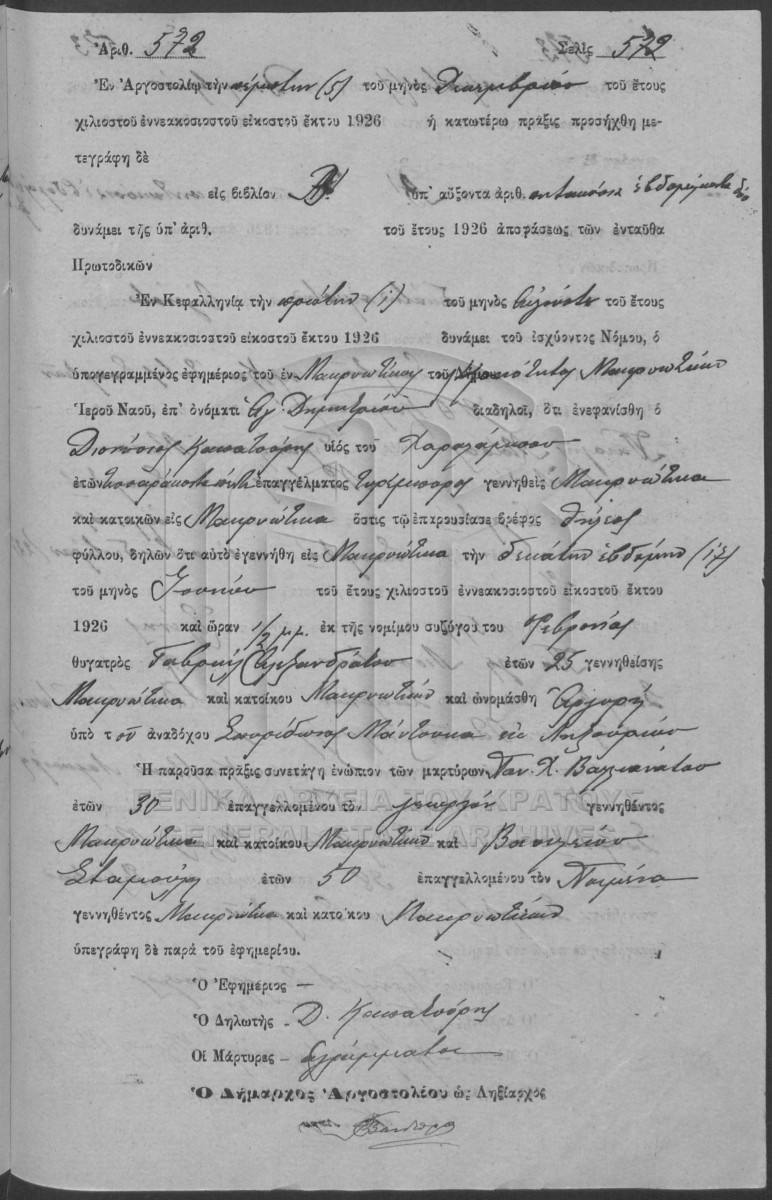 Ἀριθ. 572 Σελὶς 572
Ἐν Ἀργοστολίῳ τὴν πέμπτην (5) τοῦ μηνὸς Δεκεμβρίου τοῦ ἔτους
χιλιοστοῦ ἐννεακοσιοστοῦ εἰκοστοῦ ἕκτου 1926 ἡ κατωτέρω πρᾶξις προσήχθη με-
τεγράφη δὲ
εἰς βιβλίον ὑπ' αὔξοντα ἀριθ. πεντακόσια ἑβδομήκοντα δύο
δυνάμει τῆς ὑπ' ἀριθ. τοῦ ἔτους 1926 ἀποφάσεως τῶν ἐνταῦθα
Πρωτοδικῶν
Ἐν Κεφαλληνίᾳ τὴν πρώτην (1) τοῦ μηνὸς Αὐγούστου τοῦ ἔτους
χιλιοστοῦ ἐννεακοσιοστοῦ εἰκοστοῦ ἕκτου 1926 δυνάμει τοῦ ἰσχύοντος Νόμου, ὁ
ὑπογεγραμμένος ἐφημέριος τοῦ ἐν Μακρυωτίκοις τοῦ Μακρυωτίκων
Ἱεροῦ Ναοῦ, ἐπ' ὀνόματι Ἁγ. Δημητρίου διαδηλοῖ, ὅτι ἐνεφανίσθη ὁ
Διονύσιος Καπατσώρης υἱὸς τοῦ Χαραλάμπους
ἐτῶν τεσσαράκοντα πέντε ἐπαγγέλματος τυρέμπορος γεννηθεὶς Μακρυώτικα
καὶ κατοικῶν εἰς Μακρυώτικα ὅστις τῷ ἐπαρουσίασε βρέφος θήλεος
φύλλου, δηλῶν ὅτι αὐτὸ ἐγεννήθη εἰς Μακρυώτικα τὴν δεκάτην ἑβδόμην (17)
τοῦ μηνὸς Ἰουνίου τοῦ ἔτους χιλιοστοῦ ἐννεακοσιοστοῦ εἰκοστοῦ ἕκτου
1926 καὶ ὥραν 1/2 μ.μ. ἐκ τῆς νομίμου συζύγου του Φεβρονίας
θυγατρὸς Γαβριὴλ Ἀλεξανδράτου ἐτῶν 25 γεννηθείσης
Μακρυώτικα καὶ κατοίκου Μακρυωτίκων καὶ ὠνομάσθη Ἀργυρῆ
ὑπὸ τοῦ ἀναδόχου Σπυρίδωνος Μάντουκα ἐκ Ληξουρίου
Ἡ παροῦσα πρᾶξις συνετάγη ἐνώπιον τῶν μαρτύρων Παν. Χ. Βαλλιανάτου
ἐτῶν 30 ἐπαγγελλομένου τὸν γεωργόν γεννηθέντος
Μακρυώτικα καὶ κατοίκου Μακρυωτίκων καὶ Βαγγελίου
Σταμούλη ἐτῶν 50 ἐπαγγελλομένου τὸν Ποιμένα
γεννηθέντος Μακρυώτικα καὶ κατοίκου Μακρυωτίκων
ὑπεγράφη δὲ παρὰ τοῦ ἐφημερίου.
Ὁ Ἐφημέριος –
Ὁ Δηλωτὴς – Δ. Καπατσώρης
Οἱ Μάρτυρες – ἀγράμματοι
Ὁ Δήμαρχος Ἀργοστολίου ὡς Ληξίαρχος
ΓΕΝΙΚΑ ΑΡΧΕΙΑ ΤΟΥ ΚΡΑΤΟΥΣ
GENERAL STATE ARCHIVES